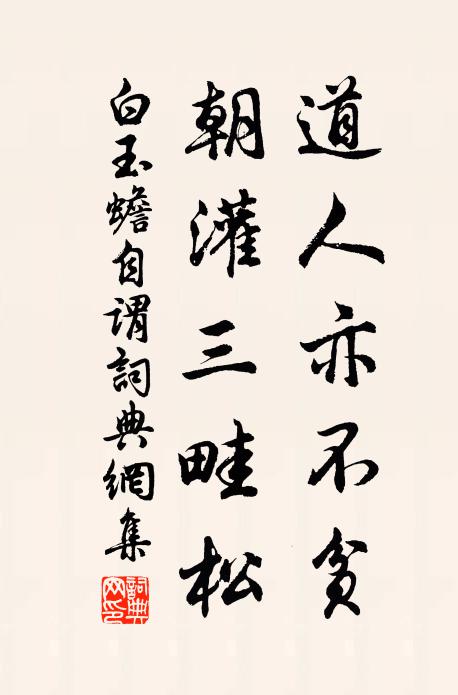 道人亦不贫
朝灌三畦松
白玉蟾自谓詞典網集
詞典網印